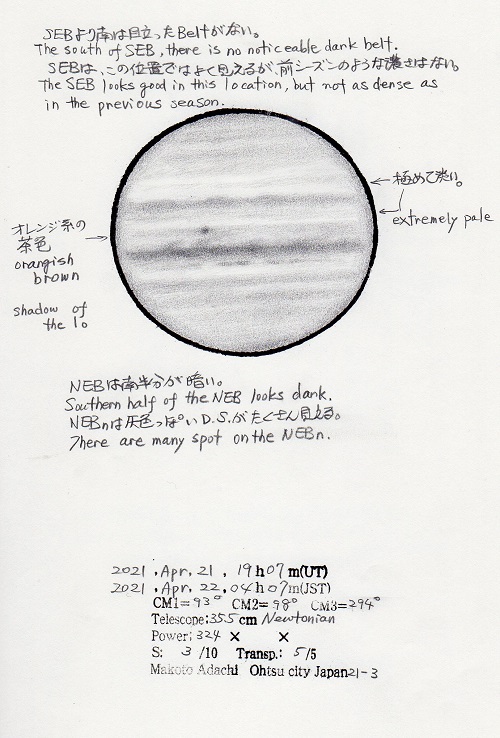 SEBより南は目立ったBeltがない。
The south of SEB, there is no noticeable dark belt.
SEBは、この位置ではよく見えるが、前シーズンのような濃さはない。
The SEB looks good in this location, but not as dense as
in the previous season.
極めて淡い。
extremely pale
オレンジ系の
茶色
orangish
brown
shadow of
the Io
NEBは南半分が暗い。
Southern half of the NEB looks dank.
NEBnは灰色っぽいD.S.がたくさん見える。
There are many spot on the NEBn.
2021, Apr. 21, 19h07m(UT)
2021, Apr. 22, 04h07m(JST)
CM1=93° CM2=98° CM3=294°
Telescope;355cm Newtonian
Power; 324 × ×
S: 3/10 Transp.: 5/5
Makoto Adachi Ohtsu city Japan 21-3